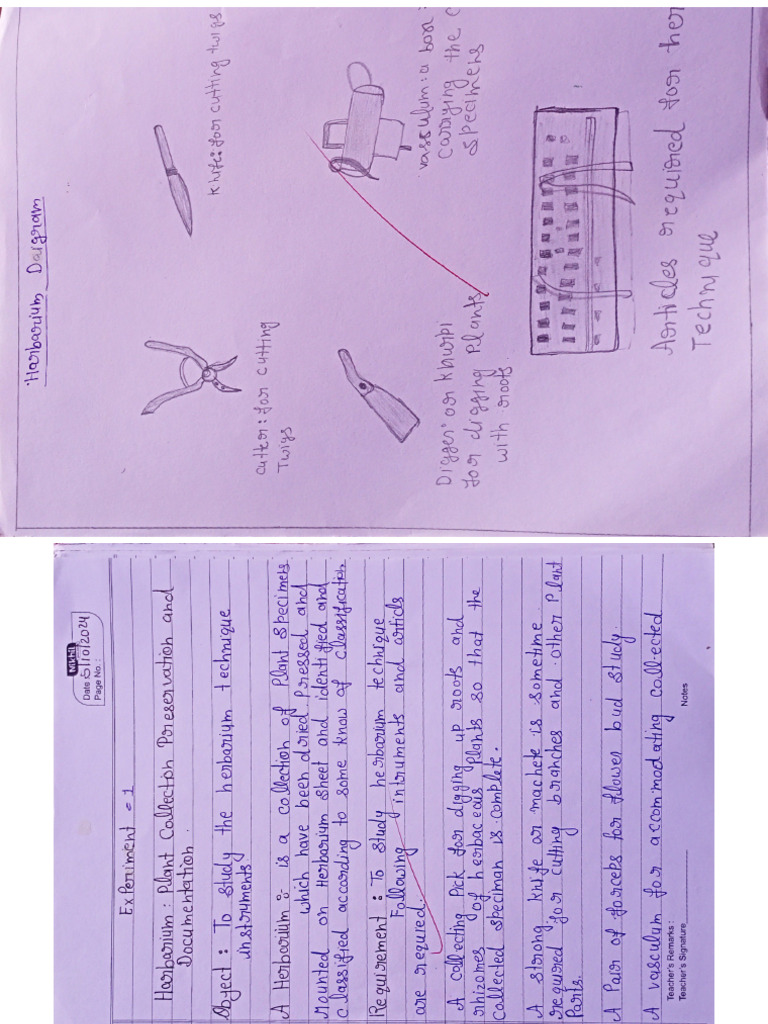 Harbarium Daigram
Knife: for cutting twigs
cutter: for cutting
Twigs
vasculum: a box
carrying the
specimens
Digger or Khurpi
for digging Plants
with roots.
Articles required for her
Technique
Mishil
Date 5/10/2024
Page No.:
Experiment = 1
Harbarium: Plant Collection Preservation and
Documentation.
Object: To study the herbarium technique
instruments
A Herbarium:- is a collection of Plant specimens
which have been dried, pressed and
mounted on Harbarium sheet and identified and
classified according to some know of classification
Requirement: To study herbarium technique
Following intruments and articls
are required.
A collecting Pick for digging up roots and
rhizomes of herbaceous plants so that the
collected speciman is complete.
A strong knife or machete is sometime
required for cutting branches and other Plant
Parts.
A Pair of forceps for flower bud study.
A vasculum for accommodating collected
Teacher's Remarks:
Teacher's Signature
Notes